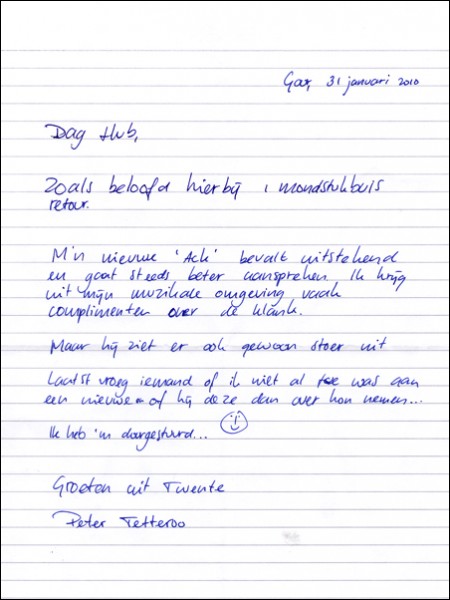 Goor, 31 januari 2010
Dag Hub,
Zoals beloofd hierbij 1 mondstukbuis
retour.
M'n nieuwe 'Ack' bevalt uitstekend
en gaat steeds beter aanspreken. Ik krijg
uit mijn muzikale omgeving vaak
complimenten over de klank.
Maar hij ziet er ook gewoon stoer uit
Laatst vroeg iemand of ik niet al toe was aan
een nieuwe - of hij deze dan over kon nemen...
Ik heb 'm doorgestuurd...
Groeten uit Twente
Peter Tetteroo